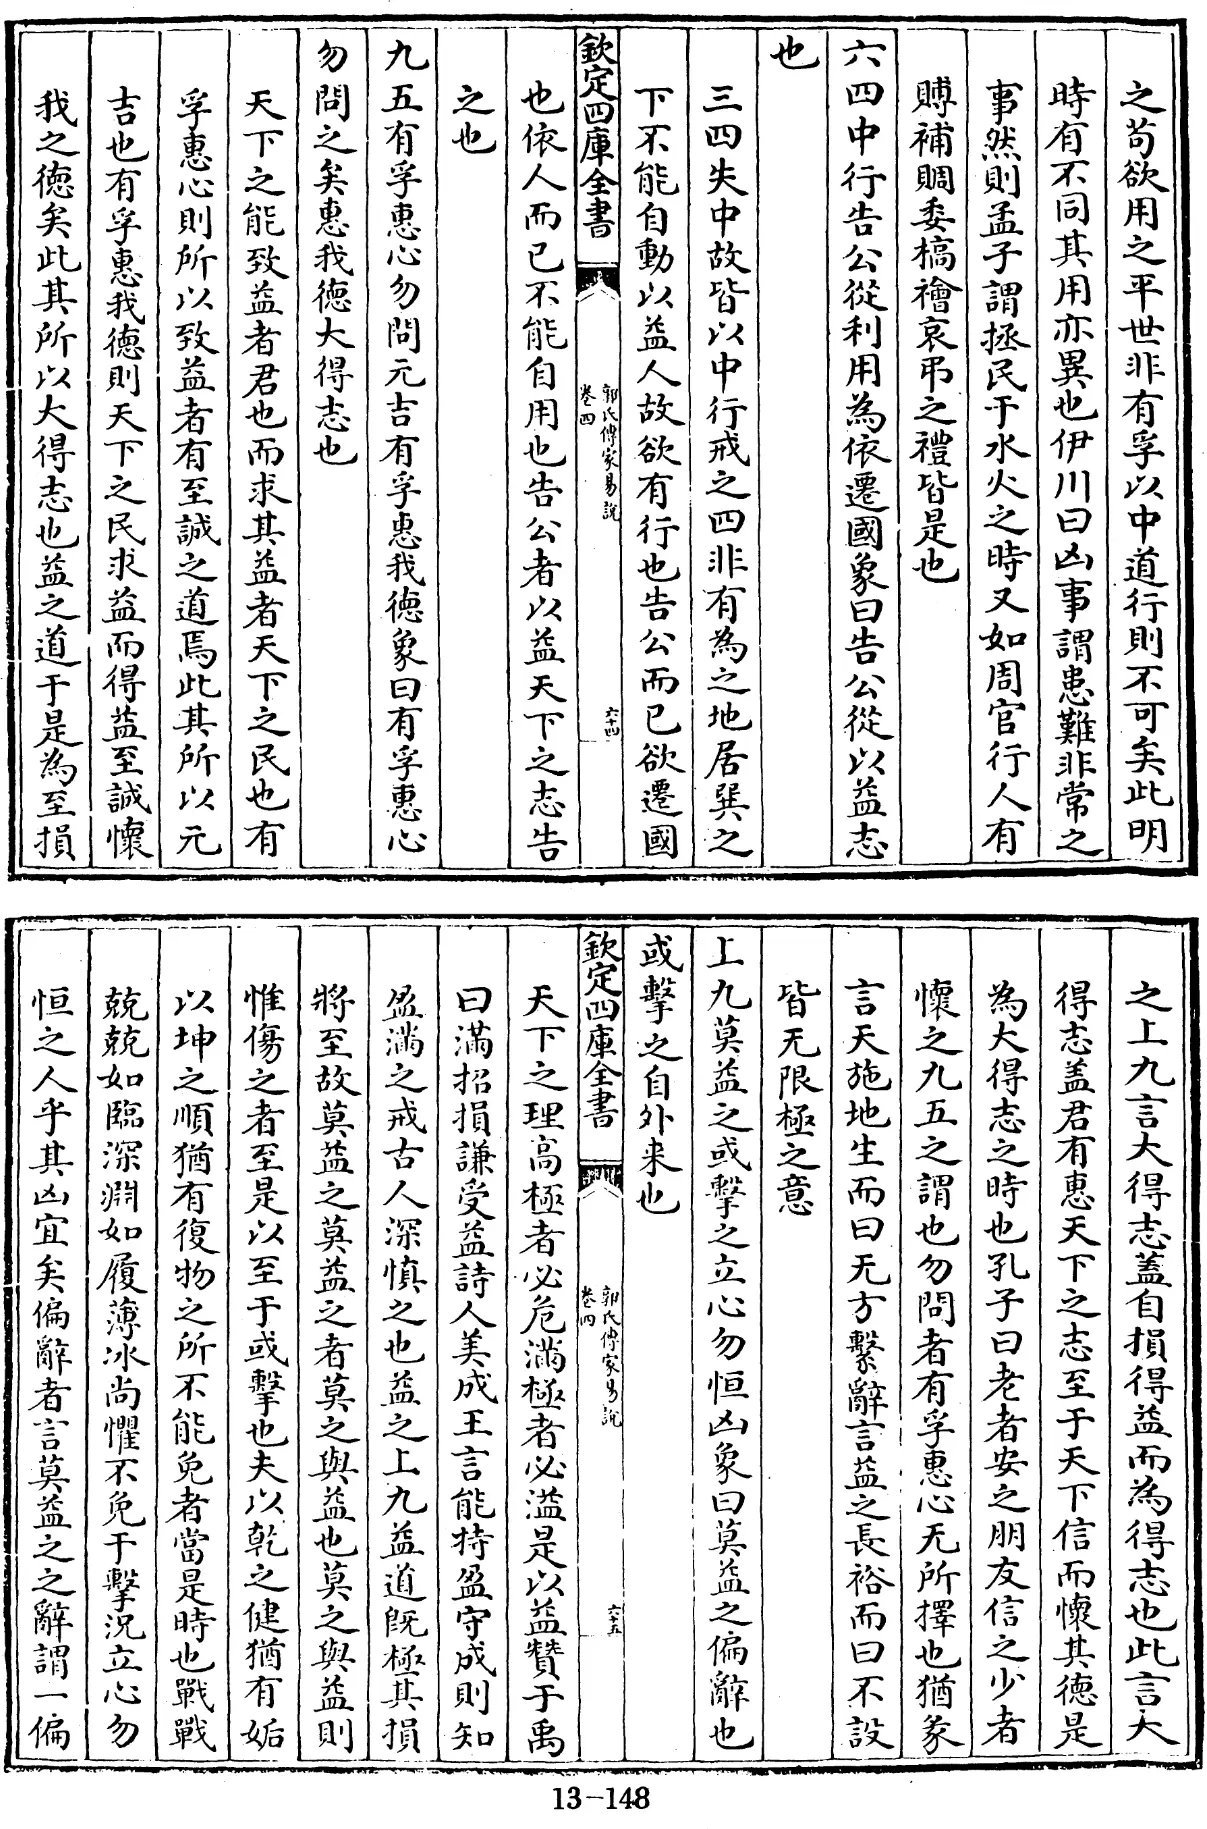 之苟欲用之平世非有孚以中道行則不可矣此明
時有不同其用亦異也伊川曰凶事謂患難非常之
事然則孟子謂拯民于水火之時又如周官行人有
賻補賙委槁禬哀弔之禮皆是也
六四中行告公從利用為依遷國象曰告公從以益志
也
三四失中故皆以中行戒之四非有為之地居巽之
下不能自動以益人故欲有行也告公而已欲遷國
欽定四庫全書
郭氏傳家易說
卷四
六十四
也依人而已不能自用也告公者以益天下之志告
之也
九五有孚惠心勿問元吉有孚惠我德象曰有孚惠心
勿問之矣惠我德大得志也
天下之能致益者君也而求其益者天下之民也有
孚惠心則所以致益者有至誠之道焉此其所以元
吉也有孚惠我德則天下之民求益而得益至誠懷
我之德矣此其所以大得志也益之道于是為至損
之上九言大得志蓋自損得益而為得志也此言大
得志蓋君有惠天下之志至于天下信而懷其德是
為大得志之時也孔子曰老者安之朋友信之少者
懷之九五之謂也勿問者有孚惠心无所擇也猶彖
言天施地生而曰无方繫辭言益之長裕而曰不設
皆无限極之意
上九莫益之或擊之立心勿恒凶象曰莫益之偏辭也
或擊之自外来也
欽定四庫全書
郭氏傳家易說
卷四
六十五
天下之理高極者必危滿極者必溢是以益贊于禹
曰滿招損謙受益詩人美成王言能持盈守成則知
盈滿之戒古人深慎之也益之上九益道既極其損
將至故莫益之莫益之者莫之與益也莫之與益則
惟傷之者至是以至于或擊也夫以乾之健猶有姤
以坤之順猶有復物之所不能免者當是時也戰戰
兢兢如臨深淵如履薄冰尚懼不免于擊况立心勿
恒之人乎其凶宜矣偏辭者言莫益之之辭謂一偏
13-148